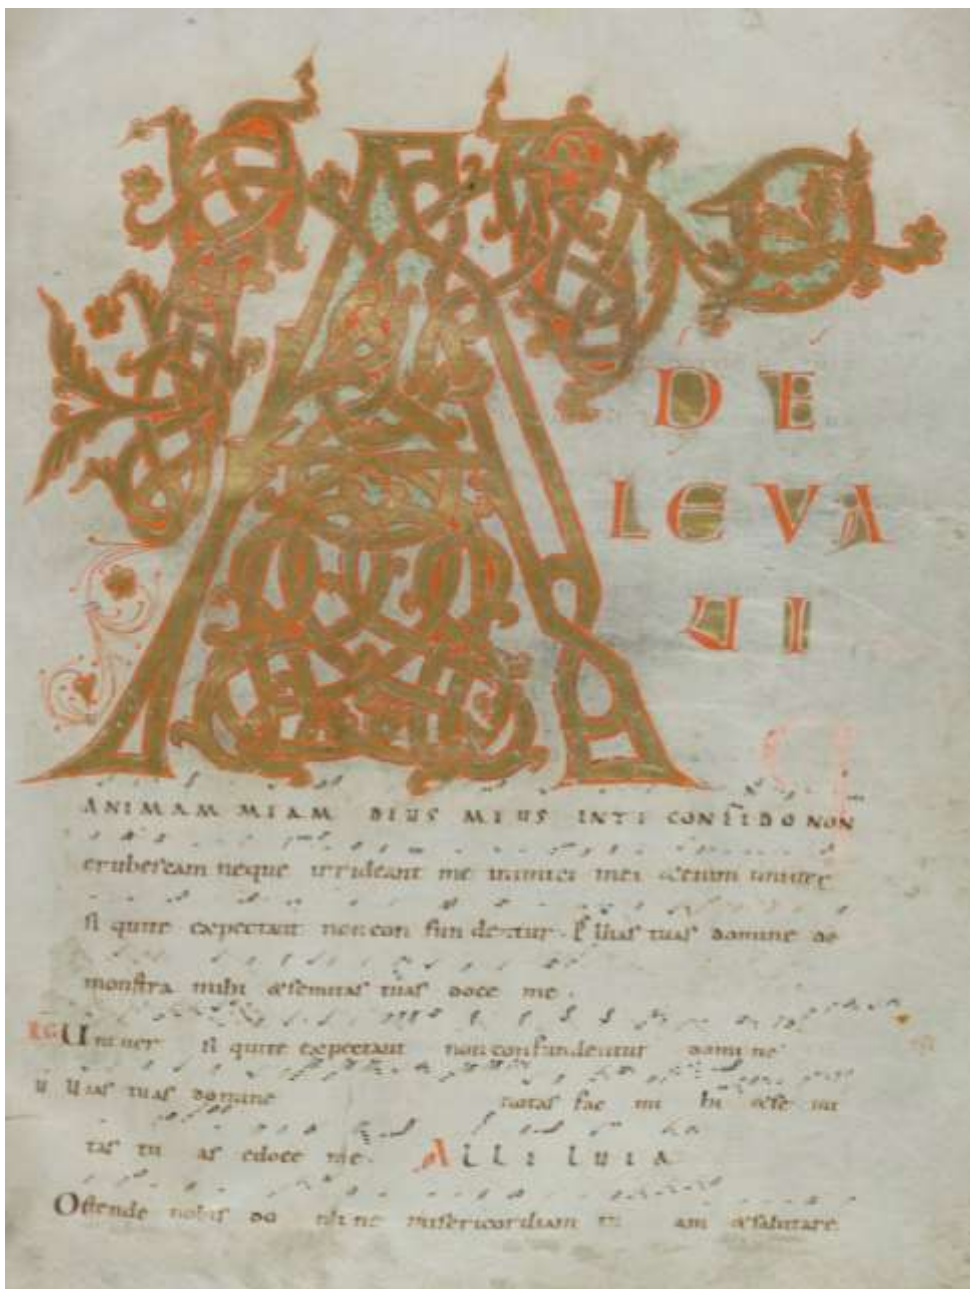 AD
DE
LEVA
UI
ANIMAM MEAM DEUS MEUS INTE CONFIDO NON
erubescam neque irrideant me inimici mei &enim univer
si qui te expectant non con fun dentur · Ps Uias tuas domine de
monstra mihi &semitas tuas doce me ·
RG Univer si qui te expectant non confundentur domi ne
U Uias tuas domine notas fac mi hi &se mi
tas tu as edoce me · ALLE LUIA
Ostende nobis do mi ne misericordiam tu am &salutare